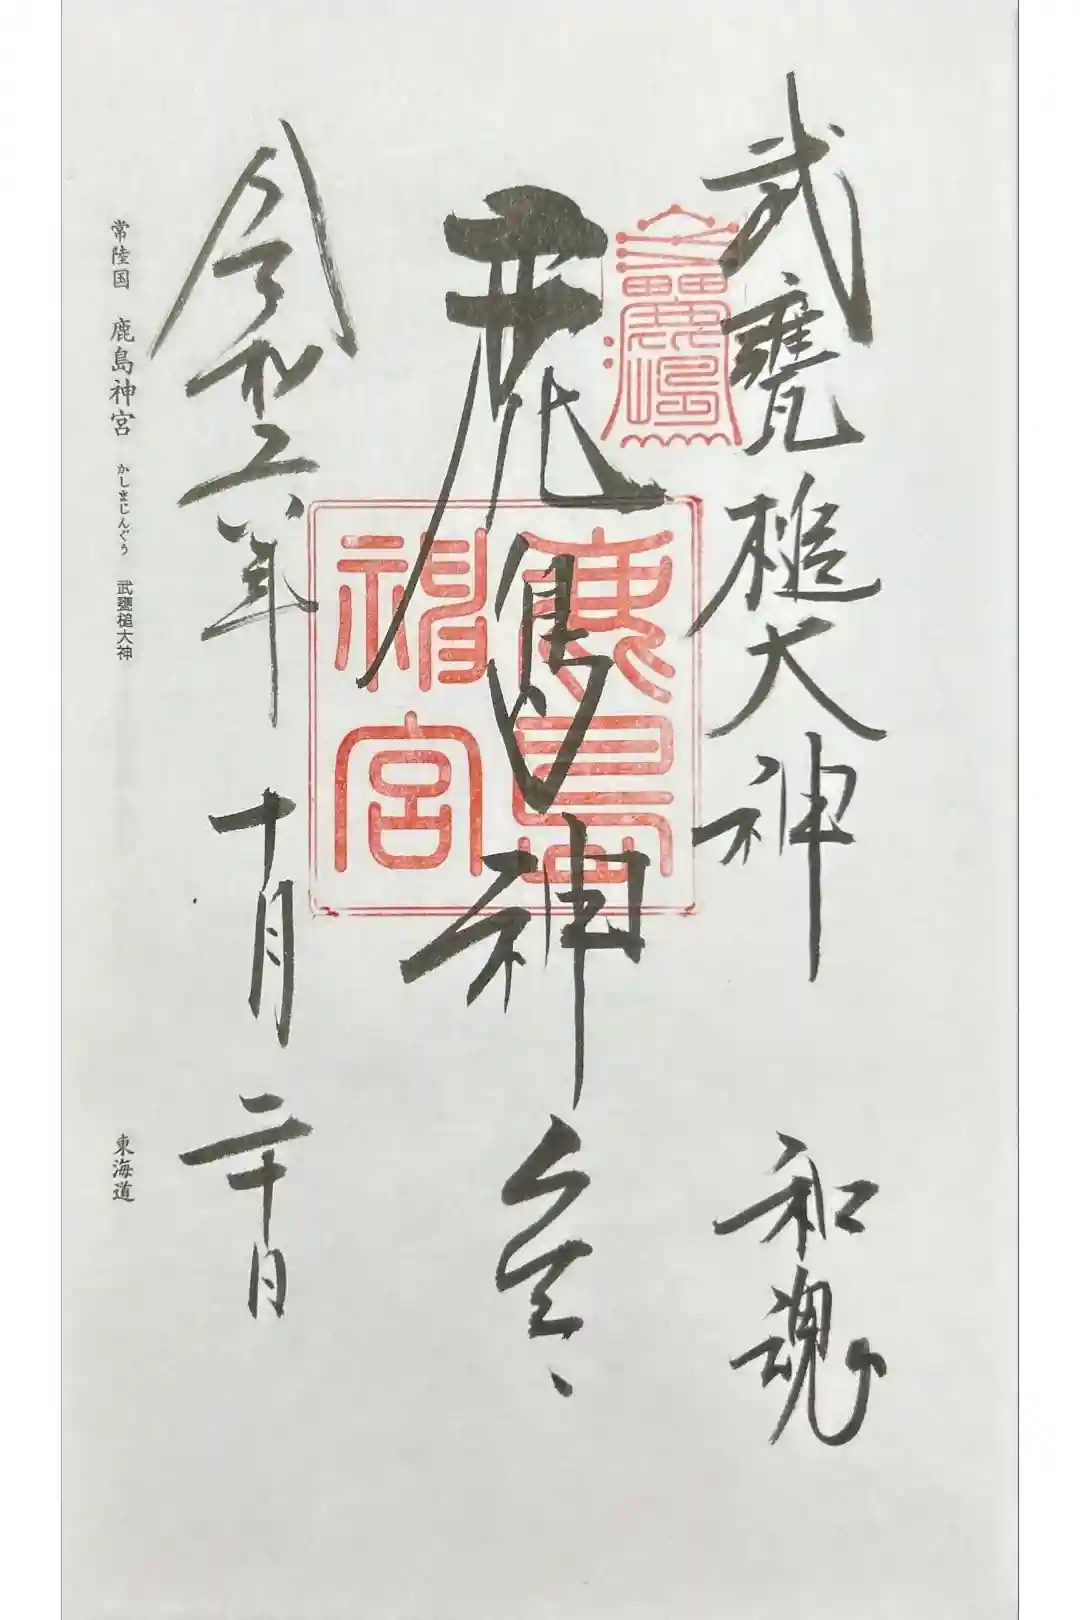 武甕槌大神 和魂
鹿島神宮
鹿島神宮
令和六年 十月 二十日
常陸国 鹿島神宮 かしまじんぐう 武甕槌大神 東海道